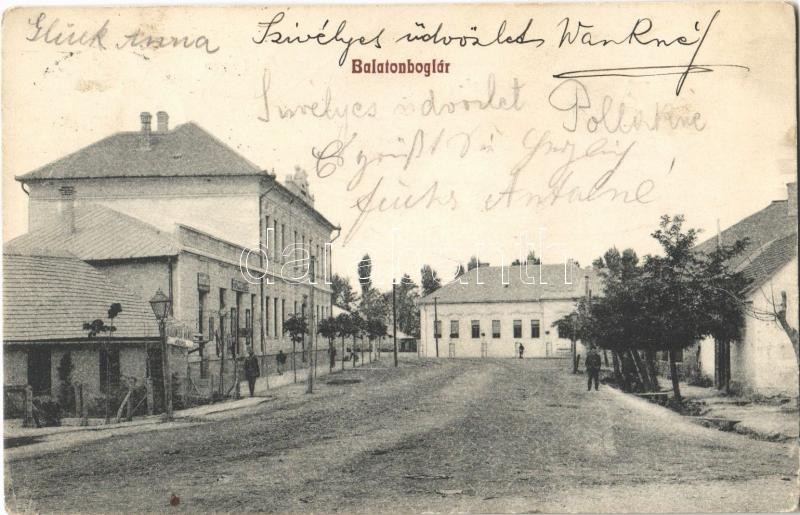 Glück Anna
Szívélyes üdvözlet Wankné
Balatonboglár
Szívélyes üdvözlet Pollákné
Es grüßt Sie herzlich
Fuchs Antalné
darabanth